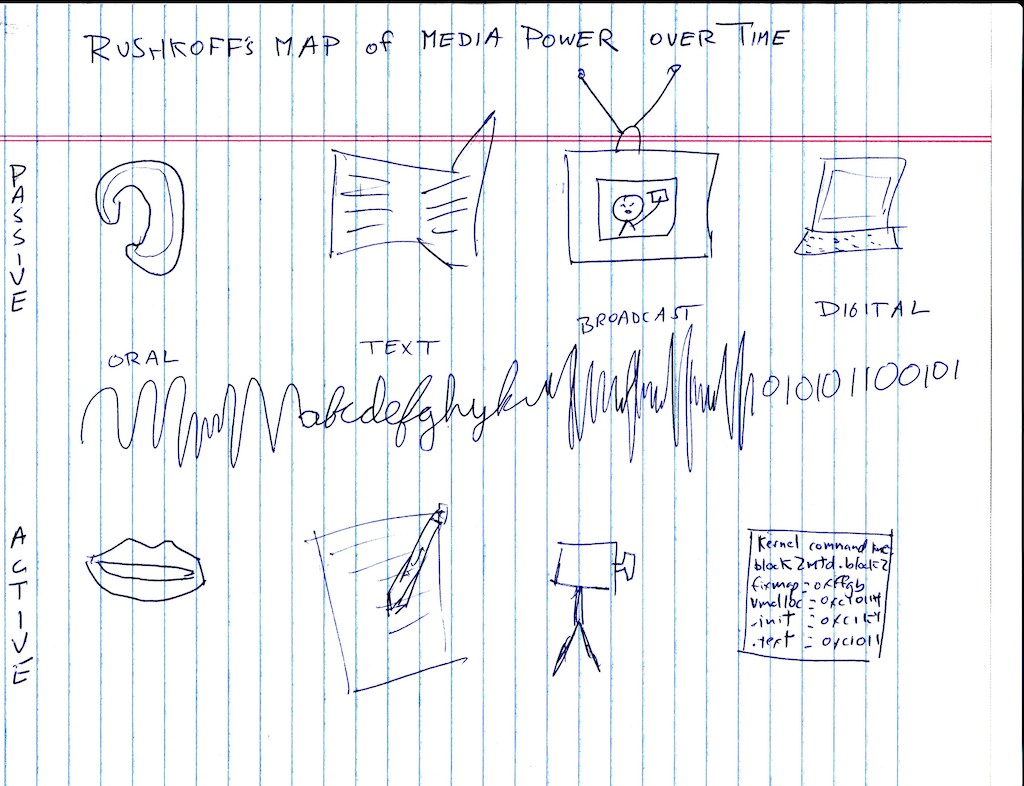 RUSHKOFF'S MAP of MEDIA POWER OVER TIME
PASSIVE
ORAL
TEXT
BROADCAST
DIGITAL
abcdefghijk
010101100101
ACTIVE
Kernel command line
block2mtd.block2
fixmap
vmalloc
.init
.text